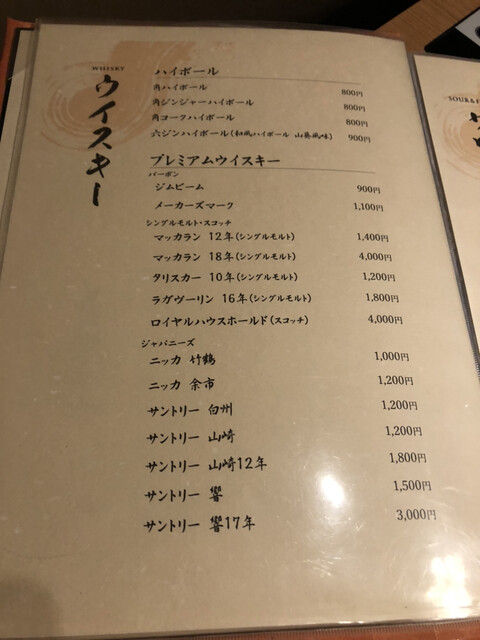 WHISKY
ウイスキー
ハイボール
角ハイボール 800円
角ジンジャーハイボール 800円
角コークハイボール 800円
六ジンハイボール(和風ハイボール 山葵風味) 900円
プレミアムウイスキー
バーボン
ジムビーム 900円
メーカーズマーク 1,100円
シングルモルト・スコッチ
マッカラン 12年(シングルモルト) 1,400円
マッカラン 18年(シングルモルト) 4,000円
タリスカー 10年(シングルモルト) 1,200円
ラガヴーリン 16年(シングルモルト) 1,800円
ロイヤルハウスホールド(スコッチ) 4,000円
ジャパニーズ
ニッカ 竹鶴 1,000円
ニッカ 余市 1,200円
サントリー 白州 1,200円
サントリー 山崎 1,200円
サントリー 山崎12年 1,800円
サントリー 響 1,500円
サントリー 響17年 3,000円